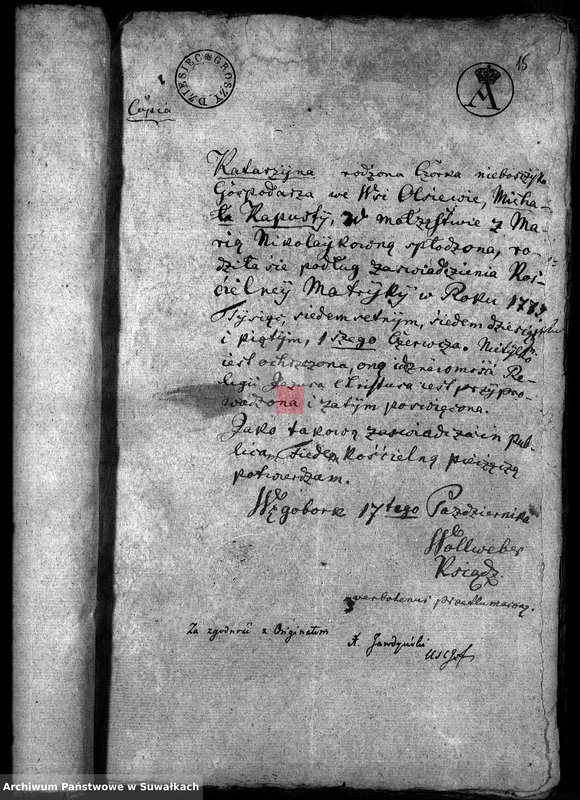 15
DZIESIĘC GROSZY
Copia
A
Katarzyna rodzona Czorka nieboszyka
Gospodarza we Wsi Olsiewie, Micha-
ła Kapusty, w małzęstwie z Ma-
rią Nikolaykowną spłodzona, ro-
dziła sie podług zaswiadizienia Koś-
cielney Matryky w Roku 1775
Tysiąc, siedem setnym, siedem dziesiąt
i piątym, 1 szego Czerwca. Nietylko
iest ochrzczona, ona idznaiomości Re-
ligii Jezusa Christusa iest przypro-
wadzona i zatym poswięcona.
Jako takową zaswiadizain pub-
licam, Siedem kościelną pieizęizią
potwierdzam.
Węgobork 17tego Pazdziernika
Wollweber
Ksiądz.
verbotenus przetłumaczony.
Za zgodność z Originałem
Archiwum Państwowe w Suwałkach